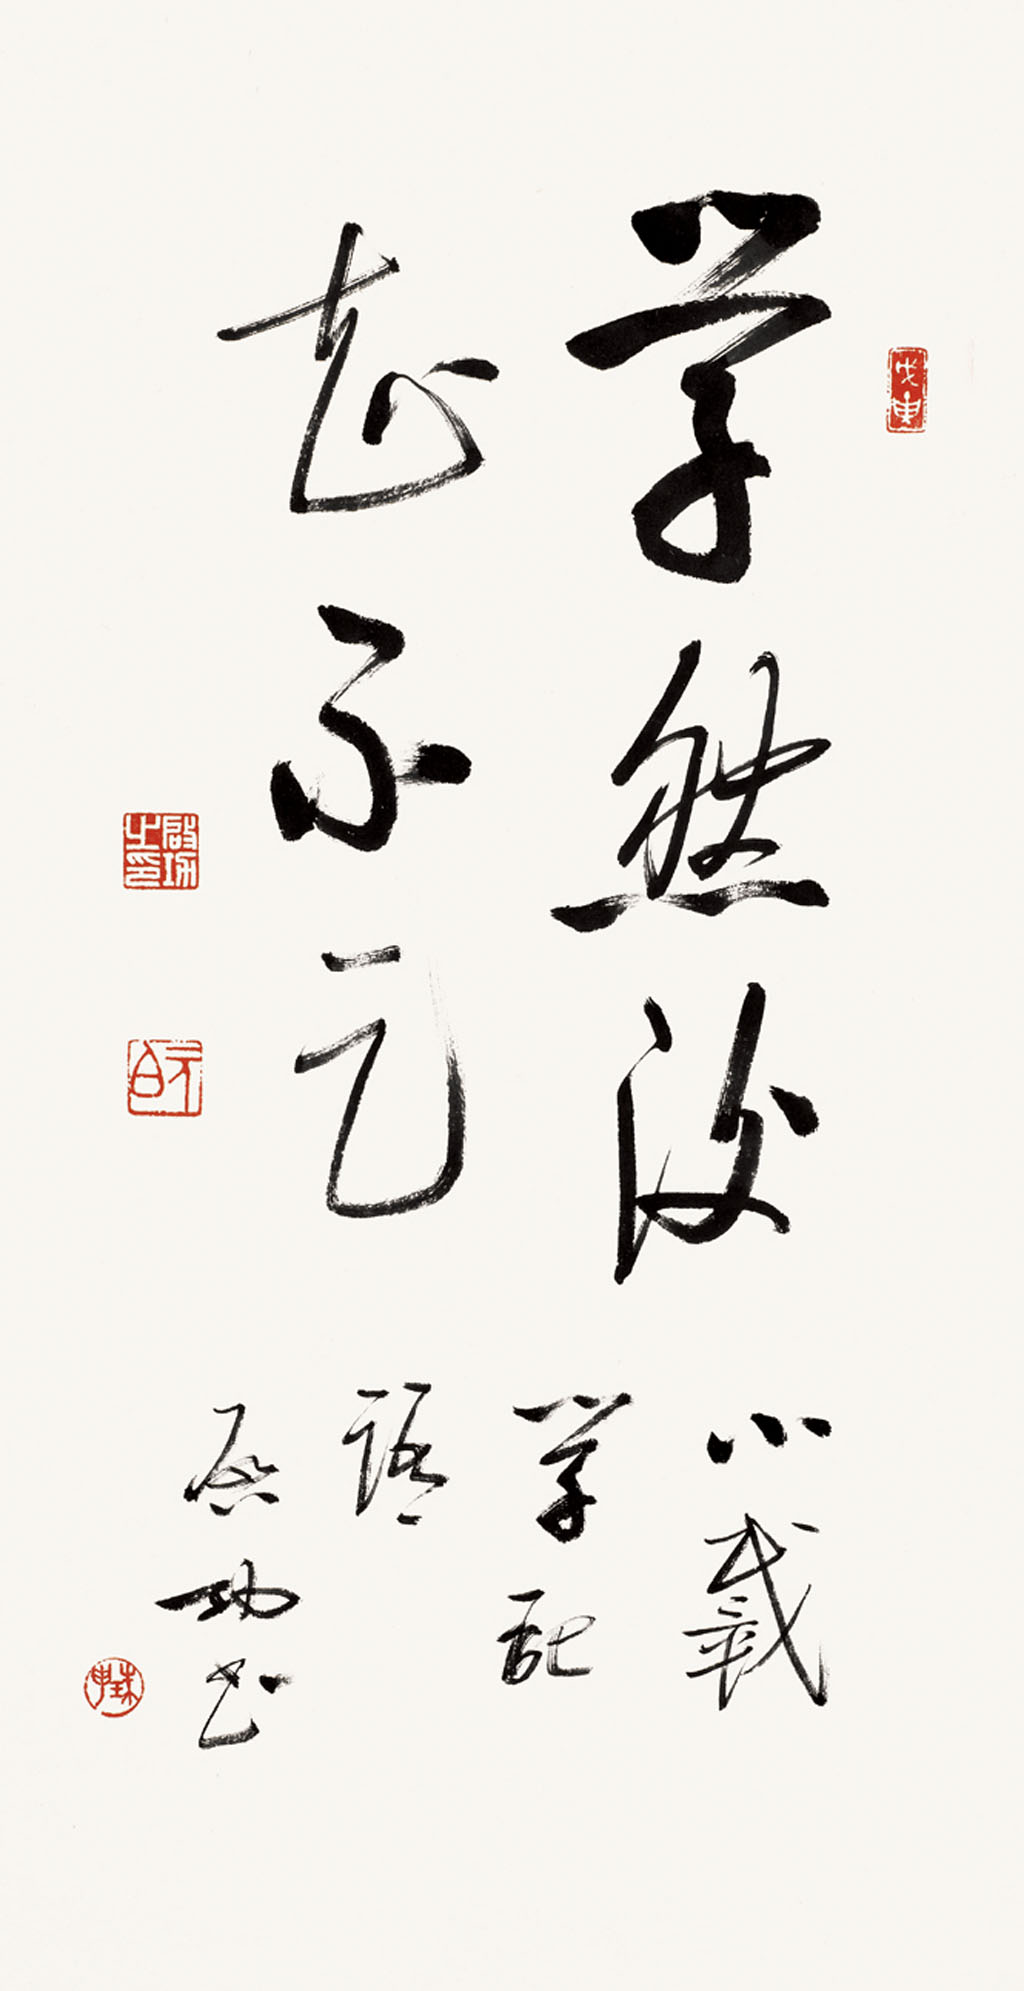 学然後
知不足
小戴
学記
語
启功书
启功之印
元白